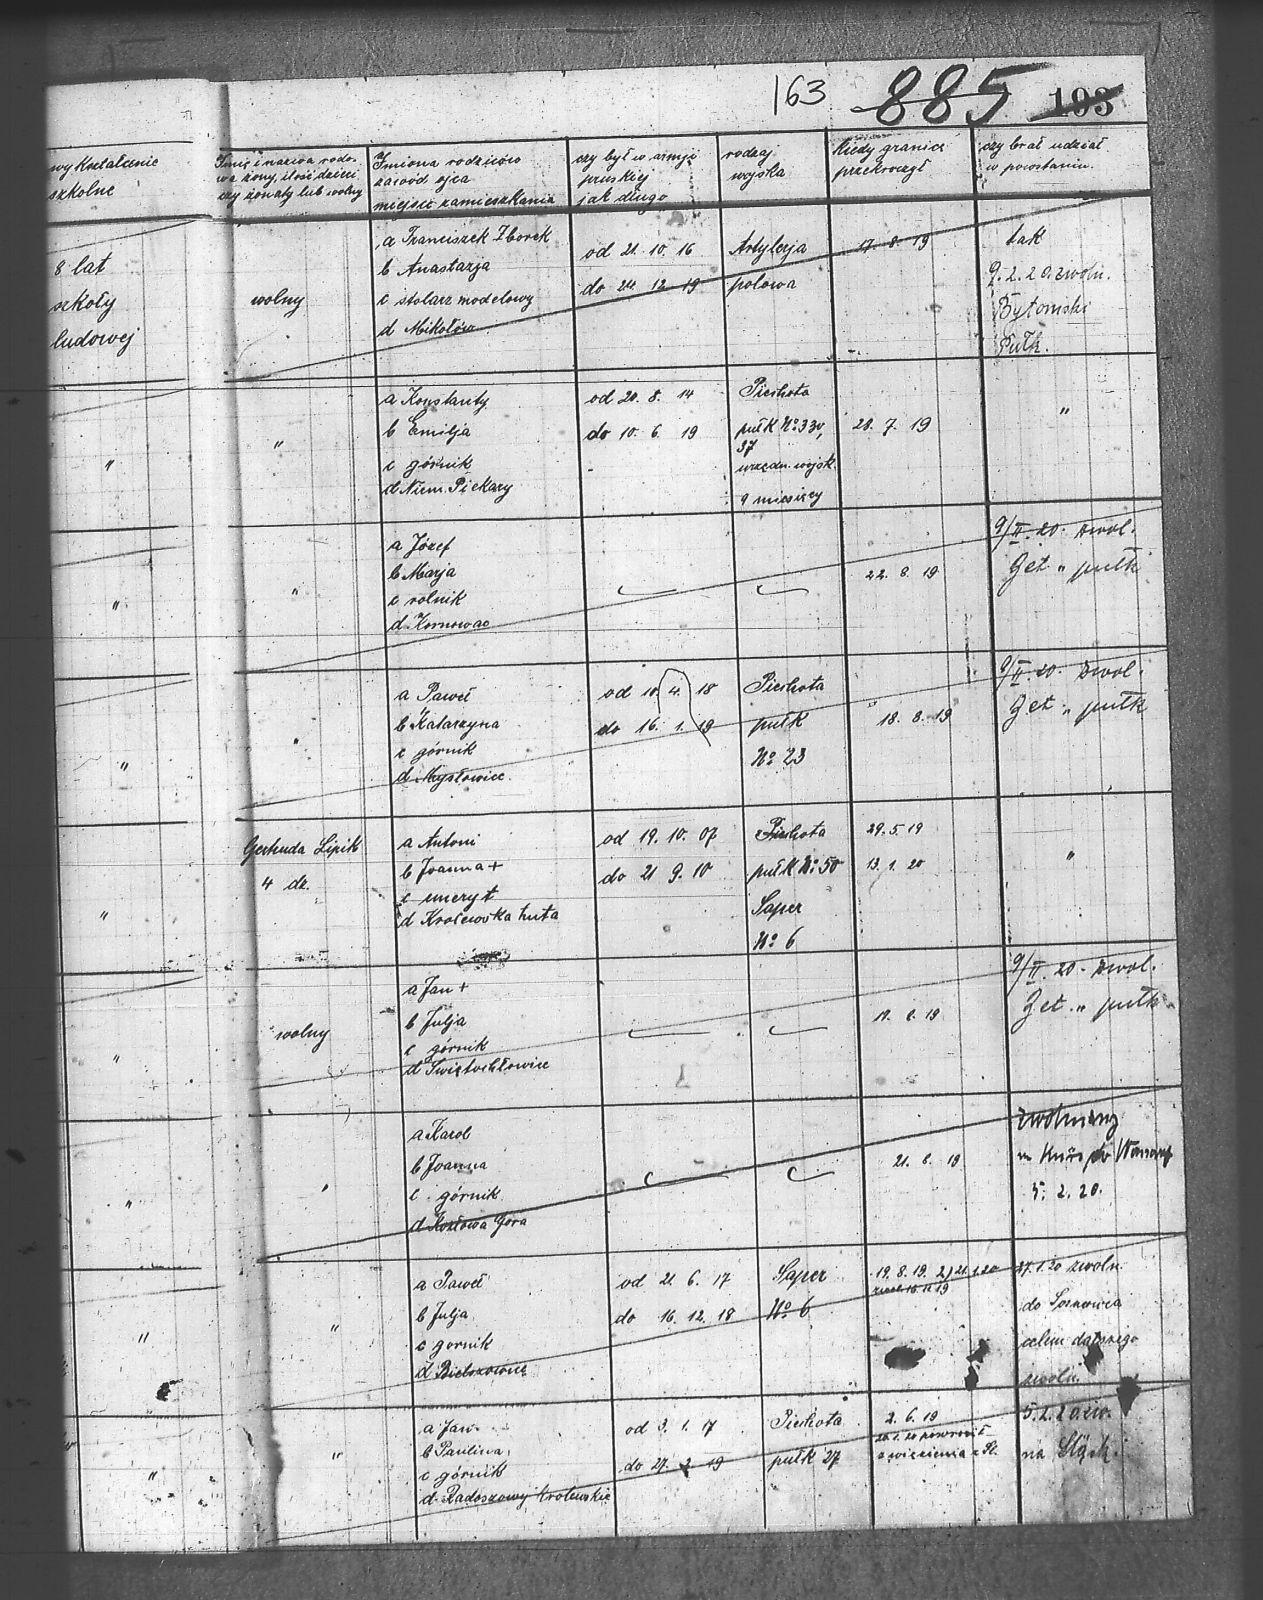 163 885 193
wykształcenie
szkolne
Imię i nazwa rodo-
wa żony, ilość dzieci
czy żonaty lub wolny
Imiona rodziców
zawód ojca
miejsce zamieszkania
czy był w armji
pruskiej
jak długo
rodzaj
wojska
Kiedy granicę
przekroczył
czy brał udział
w powstaniu
8 lat
szkoły
ludowej
wolny
a Franciszek Zborek
b Anastazja
c stolarz modelowy
d Mikołów
od 21. 10. 16
do 24. 12. 19
Artylerja
polowa
17. 8. 19
tak
9. 2. 20. zwoln.
Bytomski
Pułk.
"
"
a Konstanty
b Emilja
c górnik
d Niem. Piekary
od 20. 8. 14
do 10. 6. 19
Piechota
pułk No 330,
37
urzędn. wojsk.
9 miesięcy
20. 7. 19
"
"
"
a Józef
b Marja
c rolnik
d Kornowac
22. 8. 19
9/II. 20. zwol.
Zet. " pułk
"
"
a Paweł
b Katarzyna
c górnik
d Mysłowice.
od 10. 4. 18
do 16. 1. 19
Piechota
pułk
No 23
18. 8. 19
9/II. 20. zwol.
Zet. " pułk
"
Gertruda Lipik
4 dz.
a Antoni
b Joanna +
c emeryt
d Królewska huta
od 19. 10. 07
do 21 9. 10
Piechota
pułk No. 50
Saper
No 6
29. 5. 19
13. 1. 20
"
"
wolny
a Jan +
b Julja
c górnik
d Świętochłowice
19. 8. 19
9/II. 20. zwol.
Zet. " pułk
"
"
a Karol
b Joanna
c górnik
d Kozłowa Góra
21. 8. 19
zwolniony
na Kurs do Warszawy
5. 2. 20.
"
"
a Paweł
b Julja
c gornik
d Bielszowice
od 21 6. 17
do 16. 12. 18
Saper
No 6
19. 8. 19. 2) 21. 1. 20
zwol. 10. 11 19
27. 1. 20 zwoln.
do Sosnowca
celem dalszego
zwoln.
"
"
a Jan
b Paulina
c górnik
d. Radoszowy Królewskie
od 3. 1. 17
do 27. 2 19
Piechota
pułk 27
2. 6. 19
20. 1. 20 powrócił
z więzienia z Śl.
5. 2. 20. zw.
na Śląsk.